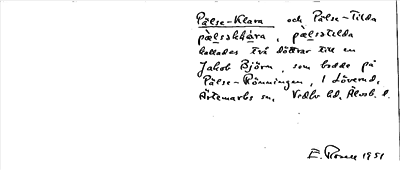 Pälse-Klara och Pälse-Tilda
pæ̀lsakḷàra, pæ̀lsatìlda
kallades två döttrar till en
Jakob Björn, som bodde på
Pälse-Rönningen, i Löverud,
Ärtemarks sn, Vedbo hd, Älvsb. l.
E. Rosell 1951